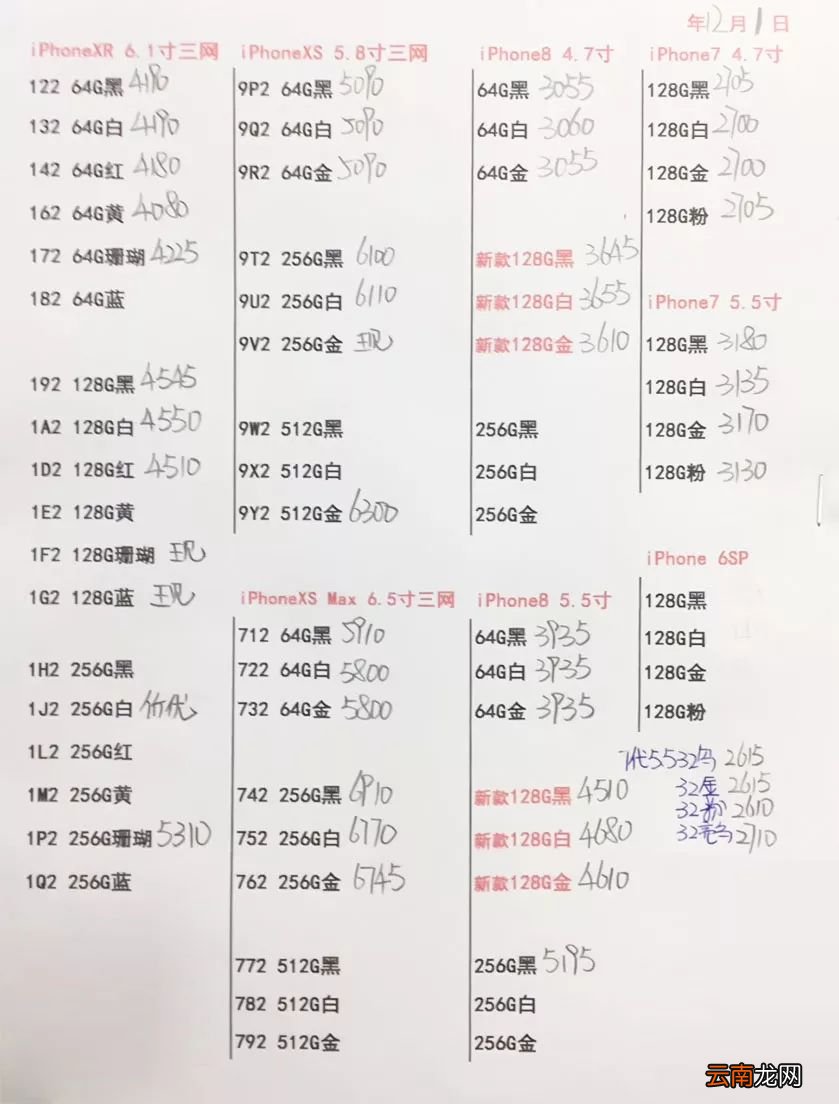 年12月1日
iPhoneXR 6.1寸三网
122 64G黑 4190
132 64G白 4190
142 64G红 4180
162 64G黄 4080
172 64G珊瑚 4225
182 64G蓝
192 128G黑 4545
1A2 128G白 4550
1D2 128G红 4510
1E2 128G黄
1F2 128G珊瑚 现
1G2 128G蓝 现
1H2 256G黑
1J2 256G白 价优
1L2 256G红
1M2 256G黄
1P2 256G珊瑚 5310
1Q2 256G蓝
iPhoneXS 5.8寸三网
9P2 64G黑 5090
9Q2 64G白 5090
9R2 64G金 5090
9T2 256G黑 6100
9U2 256G白 6110
9V2 256G金 现
9W2 512G黑
9X2 512G白
9Y2 512G金 6300
iPhoneXS Max 6.5寸三网
712 64G黑 5910
722 64G白 5800
732 64G金 5800
742 256G黑 6910
752 256G白 6770
762 256G金 6745
772 512G黑
782 512G白
792 512G金
iPhone8 4.7寸
64G黑 3055
64G白 3060
64G金 3055
新款128G黑 3645
新款128G白 3655
新款128G金 3610
256G黑
256G白
256G金
iPhone8 5.5寸
64G黑 3935
64G白 3935
64G金 3935
新款128G黑 4510
新款128G白 4680
新款128G金 4610
256G黑 5195
256G白
256G金
iPhone7 4.7寸
128G黑 2705
128G白 2700
128G金 2700
128G粉 2705
iPhone7 5.5寸
128G黑 3180
128G白 3135
128G金 3170
128G粉 3130
iPhone 6SP
128G黑
128G白
128G金
128G粉
7代5532 2615
32金 2615
32粉 2610
32亮 2710
云南龙网